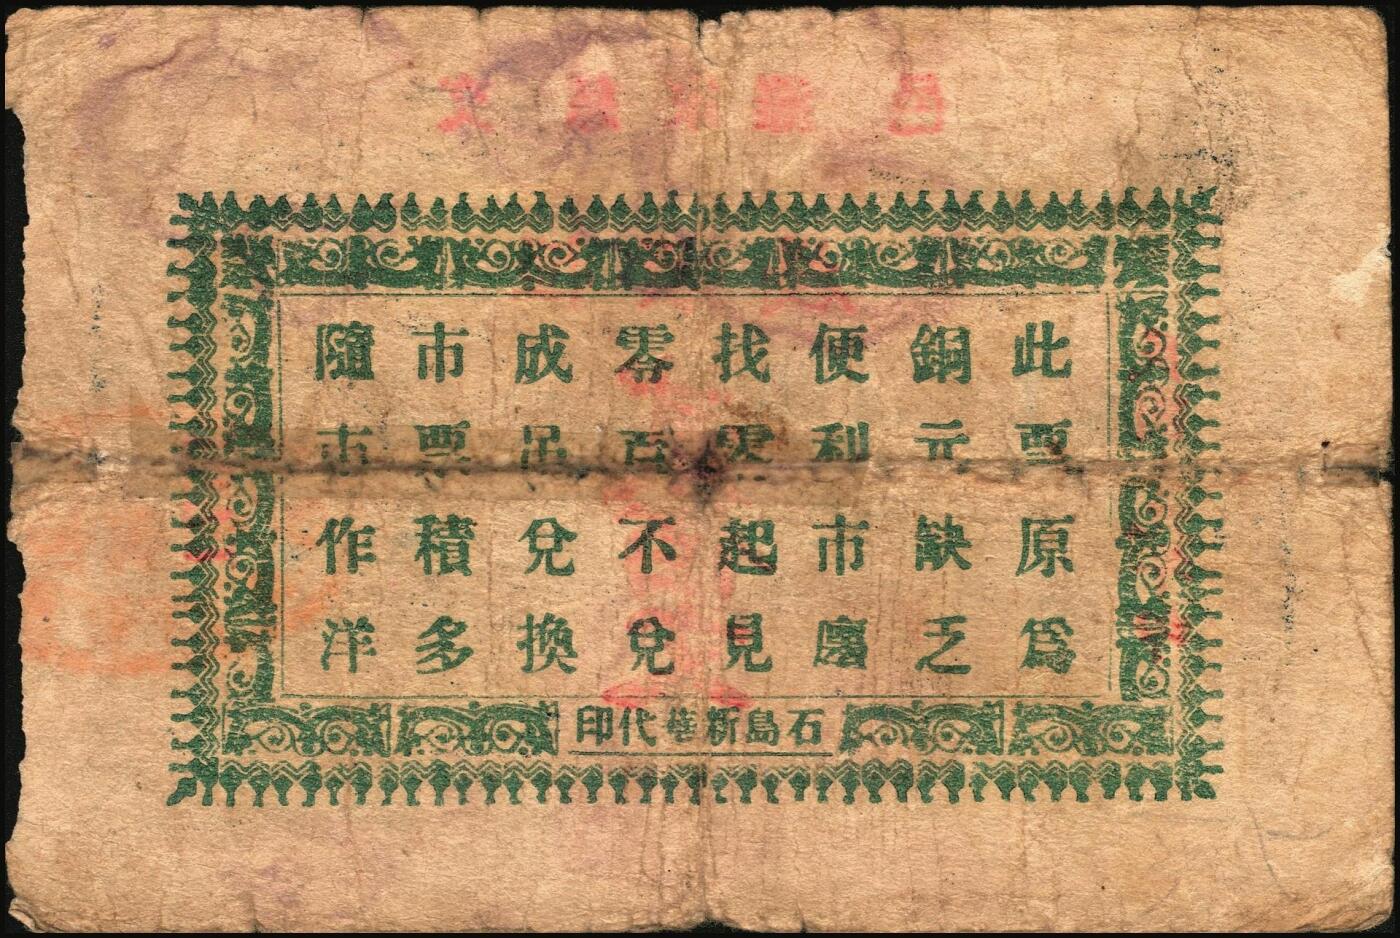 此票原為
銅元缺乏
便利市廛
找零起見
零百不兌
成吊兌換
市票積多
隨市作洋
石島新華代印